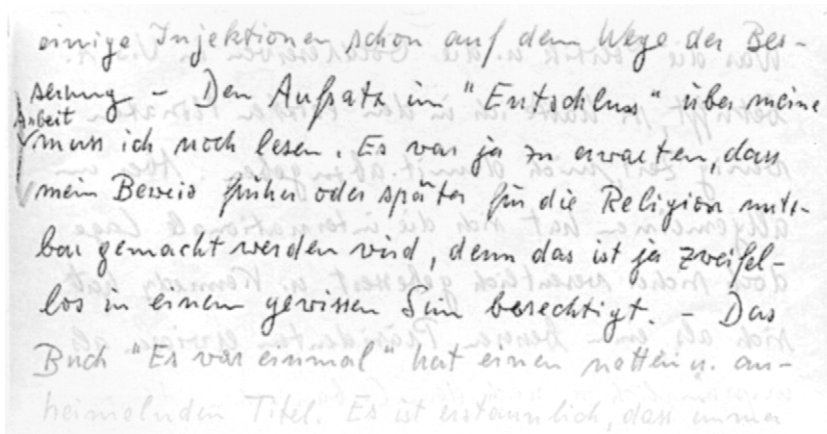 einige Injektionen schon auf dem Wege der Bes-
serung – Den Aufsatz im "Entschluss" über meine
Arbeit
muss ich noch lesen. Es war ja zu erwarten, dass
mein Beweis früher oder später für die Religion nutz-
bar gemacht werden wird, denn das ist ja zweifel-
los in einem gewissen Sinn berechtigt. – Das
Buch "Es war einmal" hat einen netten u. an-
heimelnden Titel. Es ist erstaunlich, dass immer